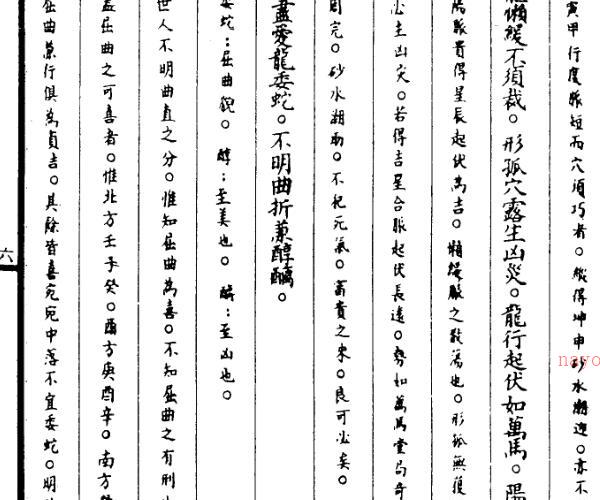 寅甲行度脈短而穴須巧者。縱得坤申砂水潮迎。亦不
懶緩不須裁。形孤穴露生凶災。龍行起伏如萬馬。陽
脈貴得星辰起伏為吉。懶緩脈之散蕩也。形孤無護
必主凶災。若得吉星合脈起伏長遠。勢如萬馬堂局奇
周完。砂水潮兩。不犯元氣。富貴之來。良可必矣。
盡愛龍委蛇。不明曲折兼醇醨。
委蛇：屈曲貌。醇：至美也。醨：至凶也。
世人不明曲直之分。惟知屈曲為喜。不知屈曲之有刑
蓋屈曲之可喜者。惟北方壬子癸。酉方庚酉辛。南方
屈曲兼行俱為貞吉。其餘皆喜宛宛中落不宜委蛇。明
六
nayo